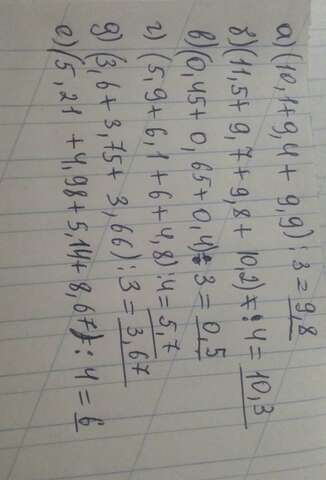 а) (10,1+9,4 + 9,9) : 3 = 9,8
б) (11,5+ 9,7+9,8 + 10,2) : 4 = 10,3
в) (0,45+0,65+0,4) : 3 = 0,5
г) (5,9+6,1+6+4,8) : 4 = 5,7
д) (3,6+3,75+ 3,66) : 3 = 3,67
е) (5,21 +4,98+5,14+8,67) : 4 = 6